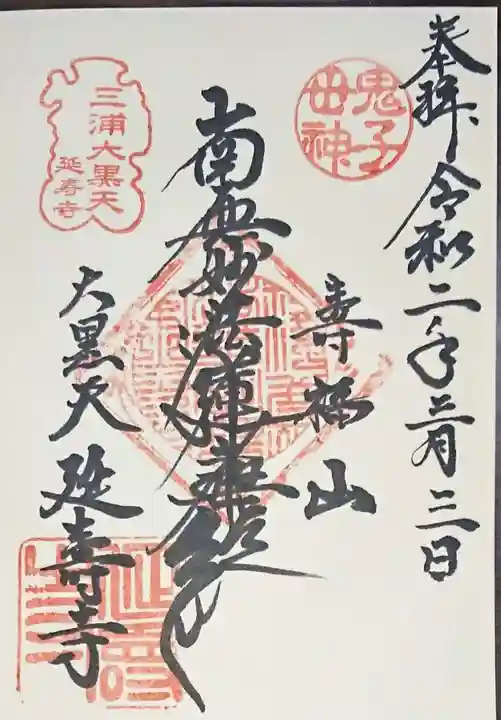 奉拝 令和二年三月三日
鬼子
母神
壽福山
南無妙法蓮華経
三浦大黒天
延寿寺
大黒天 延壽寺